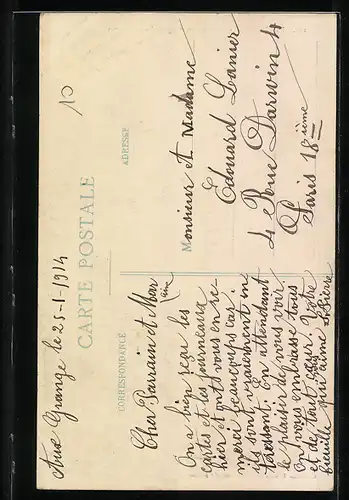 10
CARTE POSTALE
CORRESPONDANCE
ADRESSE
Aux Grange le 25-1-1914
Cher Parrain et Mar
raine
On a bien reçu les
cartes et les journeaux
hier et ont vous en re
merci beaucoups car
ils sont vraiment in
téressant. En attendant
le plaisir de vous voir
on vous embrasse tous
et de tout cœur. Votre
qui aime Pierre
Monsieur et Madame
Edouard Lanier
4 Rue Darwin 4
Paris 18 ième